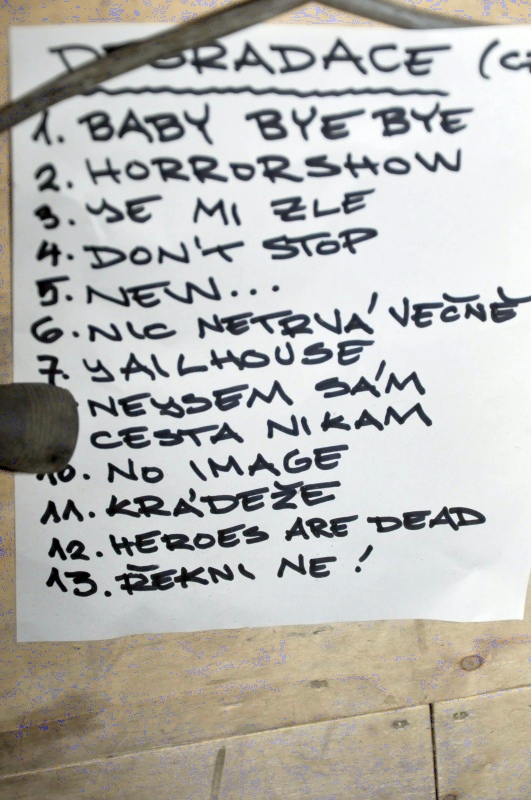 DEGRADACE (
1. BABY BYE BYE
2. HORRORSHOW
3. JE MI ZLE
4. DON'T STOP
5. NEW...
6. NIC NETRVÁ VEČNĚ
7. JAILHOUSE
NEJSEM SÁM
CESTA NIKAM
10. NO IMAGE
11. KRÁDEŽE
12. HEROES ARE DEAD
13. ŘEKNI NE!